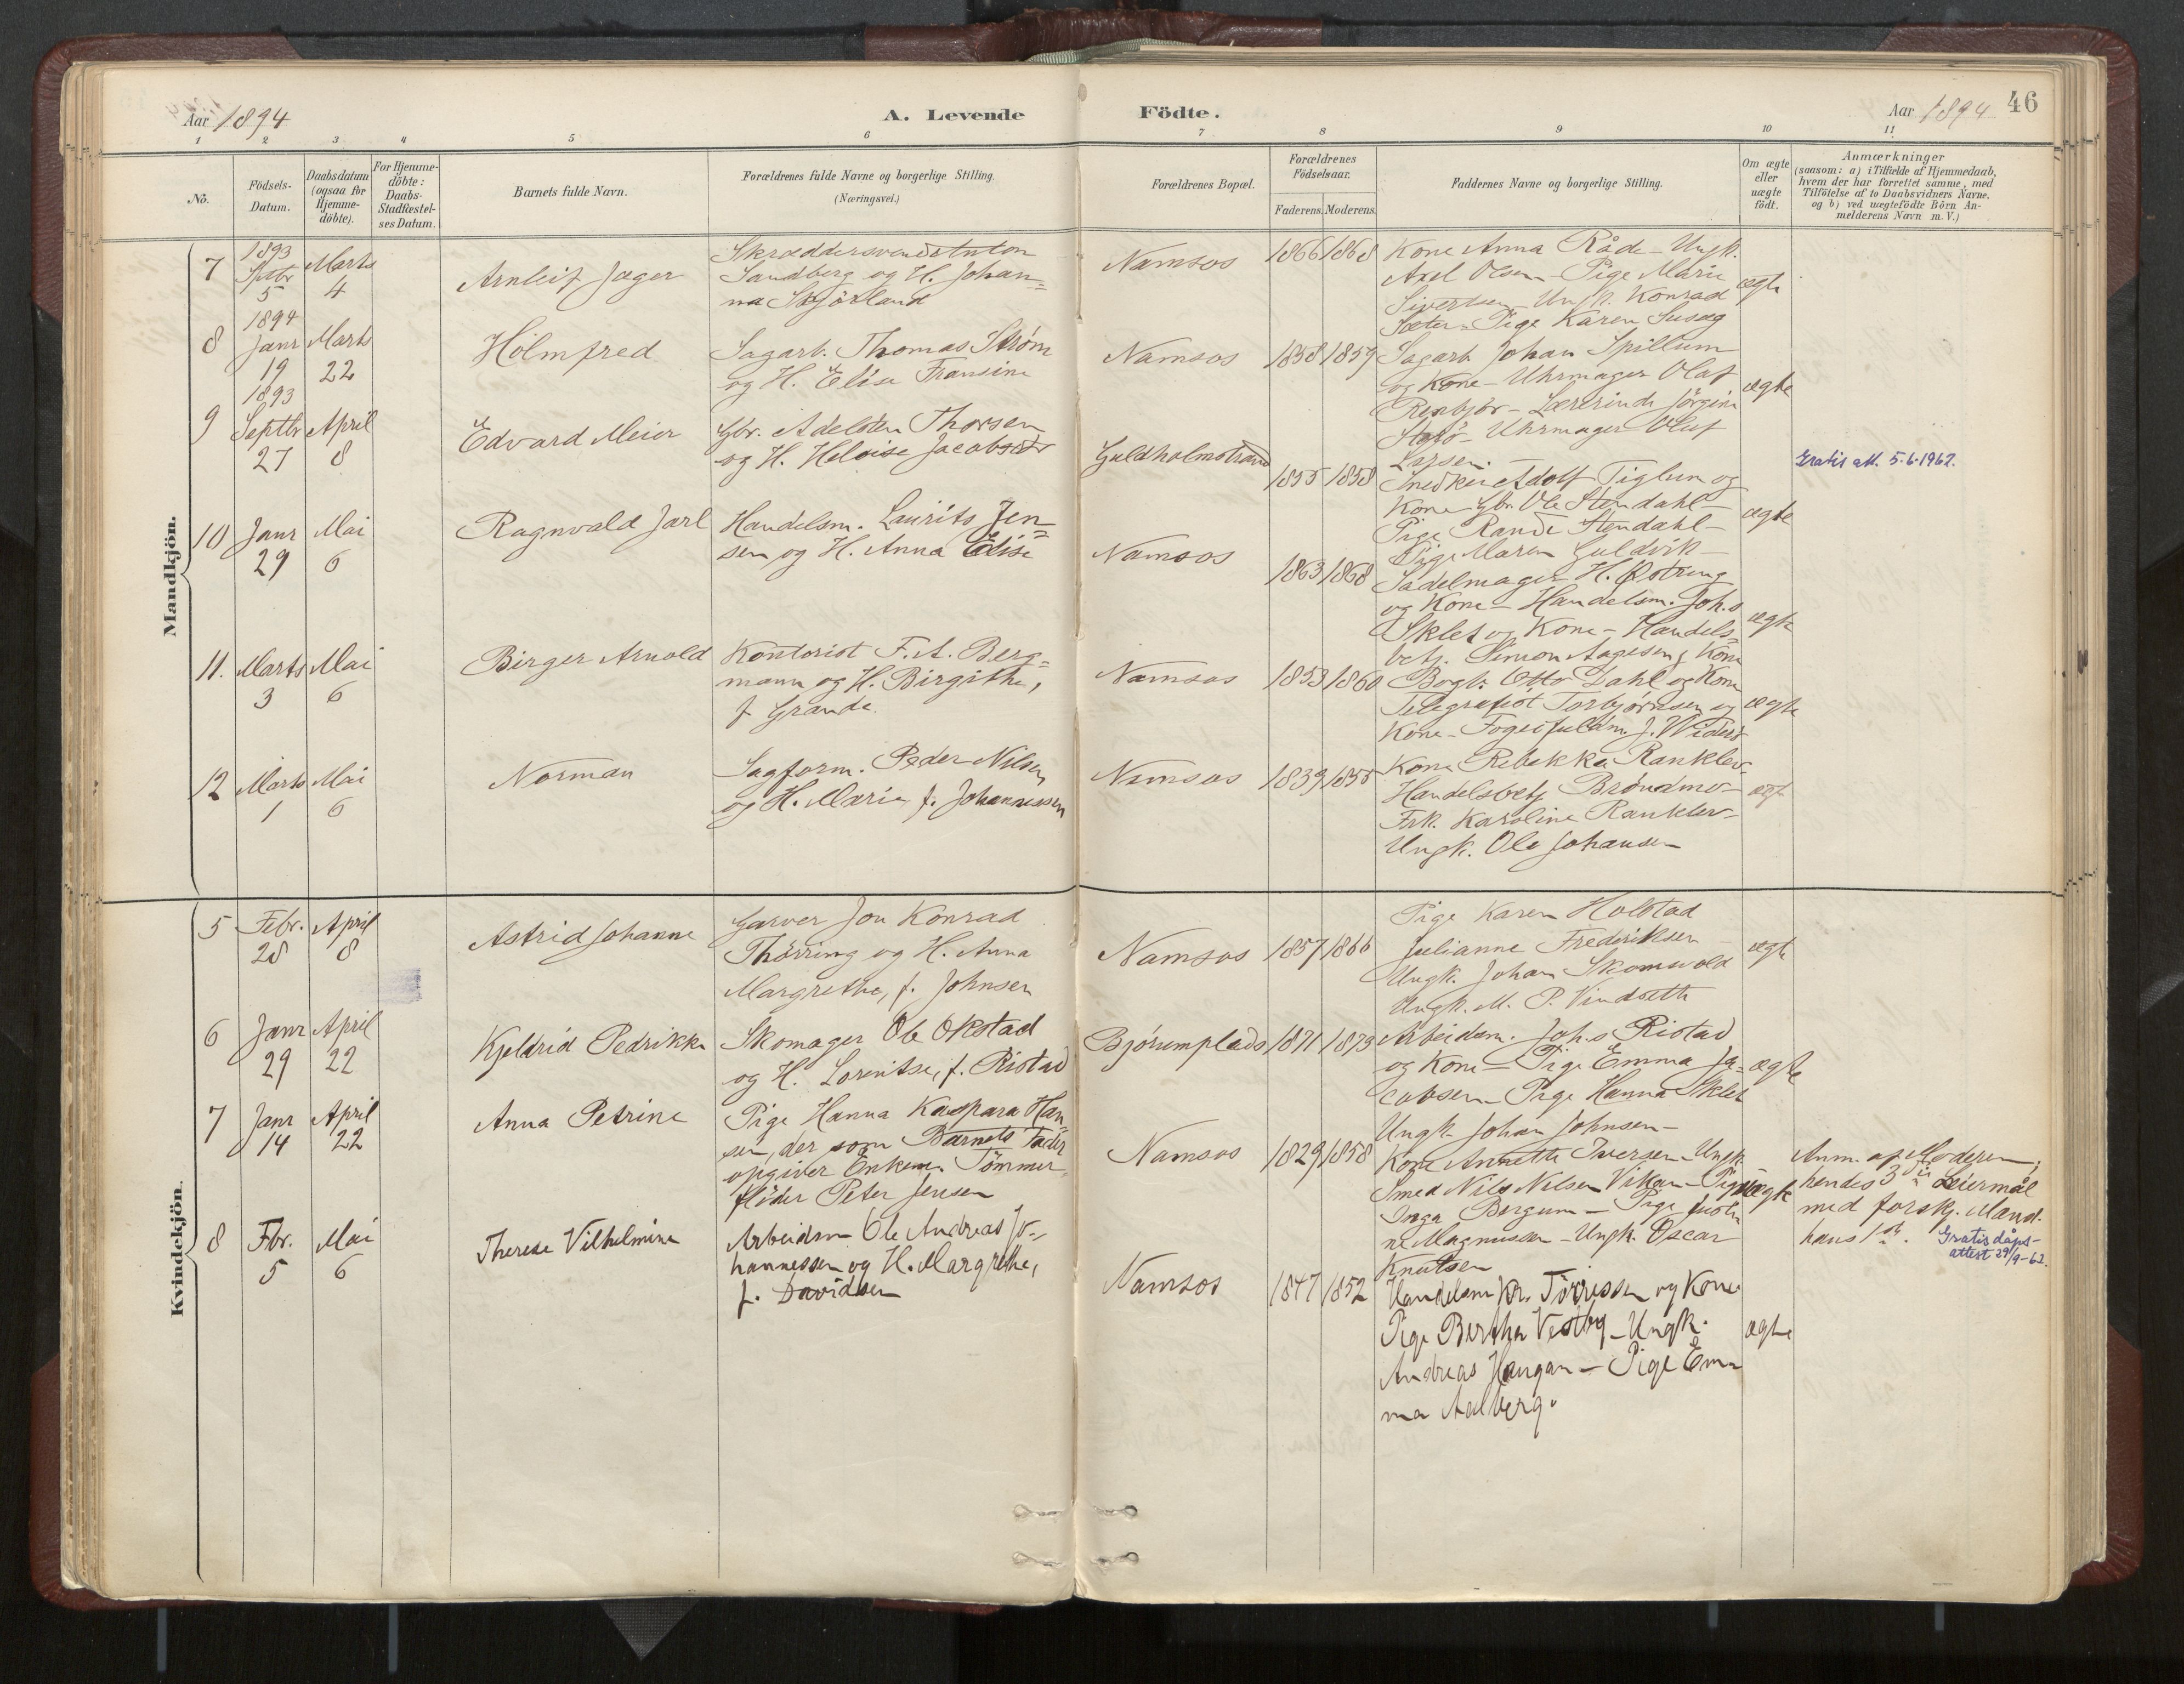 Aar 1894
A. Levende
Födte.
Aar 1894
46
1 2 3 4 5 6 7 8 9 10 11
No.
Födsels-
Datum.
Daabsdatum
(ogsaa for
Hjemme-
döbte).
For Hjemme-
döbte:
Daabs-
Stadfæstel-
ses Datum.
Barnets fulde Navn.
Forældrenes fulde Navne og borgerlige Stilling.
(Næringsvei.)
Forældrenes Bopæl.
Forældrenes
Födselsaar.
Faderens. Moderens.
Faddernes Navne og borgerlige Stilling.
Om ægte
eller
uægte
födt.
Anmærkninger
(saasom: a) i Tilfælde af Hjemmedaab,
hvem der har forrettet samme, med
Tilföielse af to Daabsvidners Navne.
og b) ved uægtefödte Börn An-
melderens Navn m. V.)
Mandkjön.
7
1893
Septbr
5
Marts
4
Arnleif Jæger
Skræddersvend Anton
Sandberg og H. Johan=
na Skjörland
Namsos
1866 1868
Kone Anna Råde - Ungk.
Axel Olsen - Pige Marie
Sivertsen - Ungk. Konrad
Sæter - Pige Karen Susæg
ægte
8
1894
Janr
19
Marts
22
Holmfred
Sagarb. Thomas Strøm
og H. Elise Fransine
Namsos
1858 1859
Sagarb. Johan Spillum
og Kone - Uhrmager Olaf
Rexbjör - Lærerinde Jörgine
Stasö - Uhrmager Oluf
Larsen.
ægte
9
1893
Septbr
27
April
8
Edvard Meier
Gbr. Adelsten Thorsen
og H. Heloise Jacobsdr
Guldholmstrand
1855 1858
Snedker Adolf Tiglum og
Kone - Gbr. Ole Stendahl -
Pige Rande Stendahl -
Pige Maren Guldvik -
ægte
Gratis att. 5.6.1962.
10
Janr
29
Mai
6
Ragnvald Jarl
Handelsm. Laurits Jen=
sen og H. Anna Elise
Namsos
1863 1868
Sadelmager H. Østring
og Kone - Handelsm. Joh.s
Sklet og Kone - Handels=
betj. Simon Aagesen & Kone
ægte
11.
Marts
3
Mai
6
Birger Arnold
Kontorist F. A. Berg=
mann og H. Birgithe,
f. Grande.
Namsos
1853 1860
Bogh. Otto Dahl og Kone
Telegrafist Torbjørnsen og
Kone - Fogedfuldm. J. Widerø
ægte
12
Marts
1
Mai
6
Norman
Sagform. Peder Nilsen
og H. Marie, f. Johannessen
Namsos
1839 1855
Kone Rebekka Ranklev.
Handelsbetj Brøndmo -
Frk. Karoline Ranklev -
Ungk. Ole Johansen
ægte
Kvindekjön.
5
Febr.
28
April
8
Astrid Johanne
Garver Jon Konrad
Thörring og H. Anna
Margrethe, f. Johnsen
Namsos
1857 1866
Pige Karen Holstad
Julianne Frederiksen -
Ungk. Johan Skomsvold
Ungk. M. P. Vindseth
ægte
6
Janr
29
April
22
Kjeldrid Pedrikke
Skomager Ole Okstad
og H. Lorentse, f. Ristad
Bjørumplads
1871 1873
Arbeidsm. Joh.s Ristad
og Kone - Pige Emma Ja=
cobsen - Pige Hanna Sklet
Ungk. Johan Johnsen -
ægte
7
Janr
14
April
22
Anna Petrine
Pige Hanna Kaspara Han=
sen, der som Barnets Fader
opgiver Enkem. Tømmer=
fløder Peter Jensen
Namsos
1829 1858
Kone Annette Iversen - Ungk.
Smed Nils Nilsen Vikan - Pige
Inga Bergum - Pige Justi=
ne Magnussen - Ungk. Oscar
Knutsen
uægte
Anm. af Moderen;
hendes 3die Leiermål
med forskj. Mand.
hans 1ste.
Gratis dåps-
attest 29/9-62.
8
Fbr.
5
Mai
6
Therese Vilhelmine
Arbeidsm Ole Andreas Jo=
hannessen og H. Margrethe,
f. Davidsen
Namsos
1847 1852
Handelsm Kr. Törrissen og Kone
Pige Bertha Vestby - Ungk.
Andreas Haugan - Pige Em=
ma Aalberg.
ægte